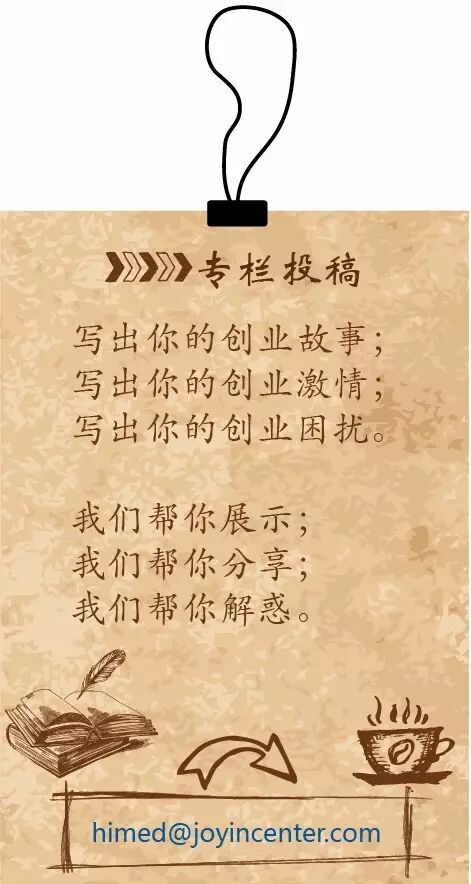 专栏投稿
写出你的创业故事；
写出你的创业激情；
写出你的创业困扰。
我们帮你展示；
我们帮你分享；
我们帮你解惑。
himed@joyincenter.com